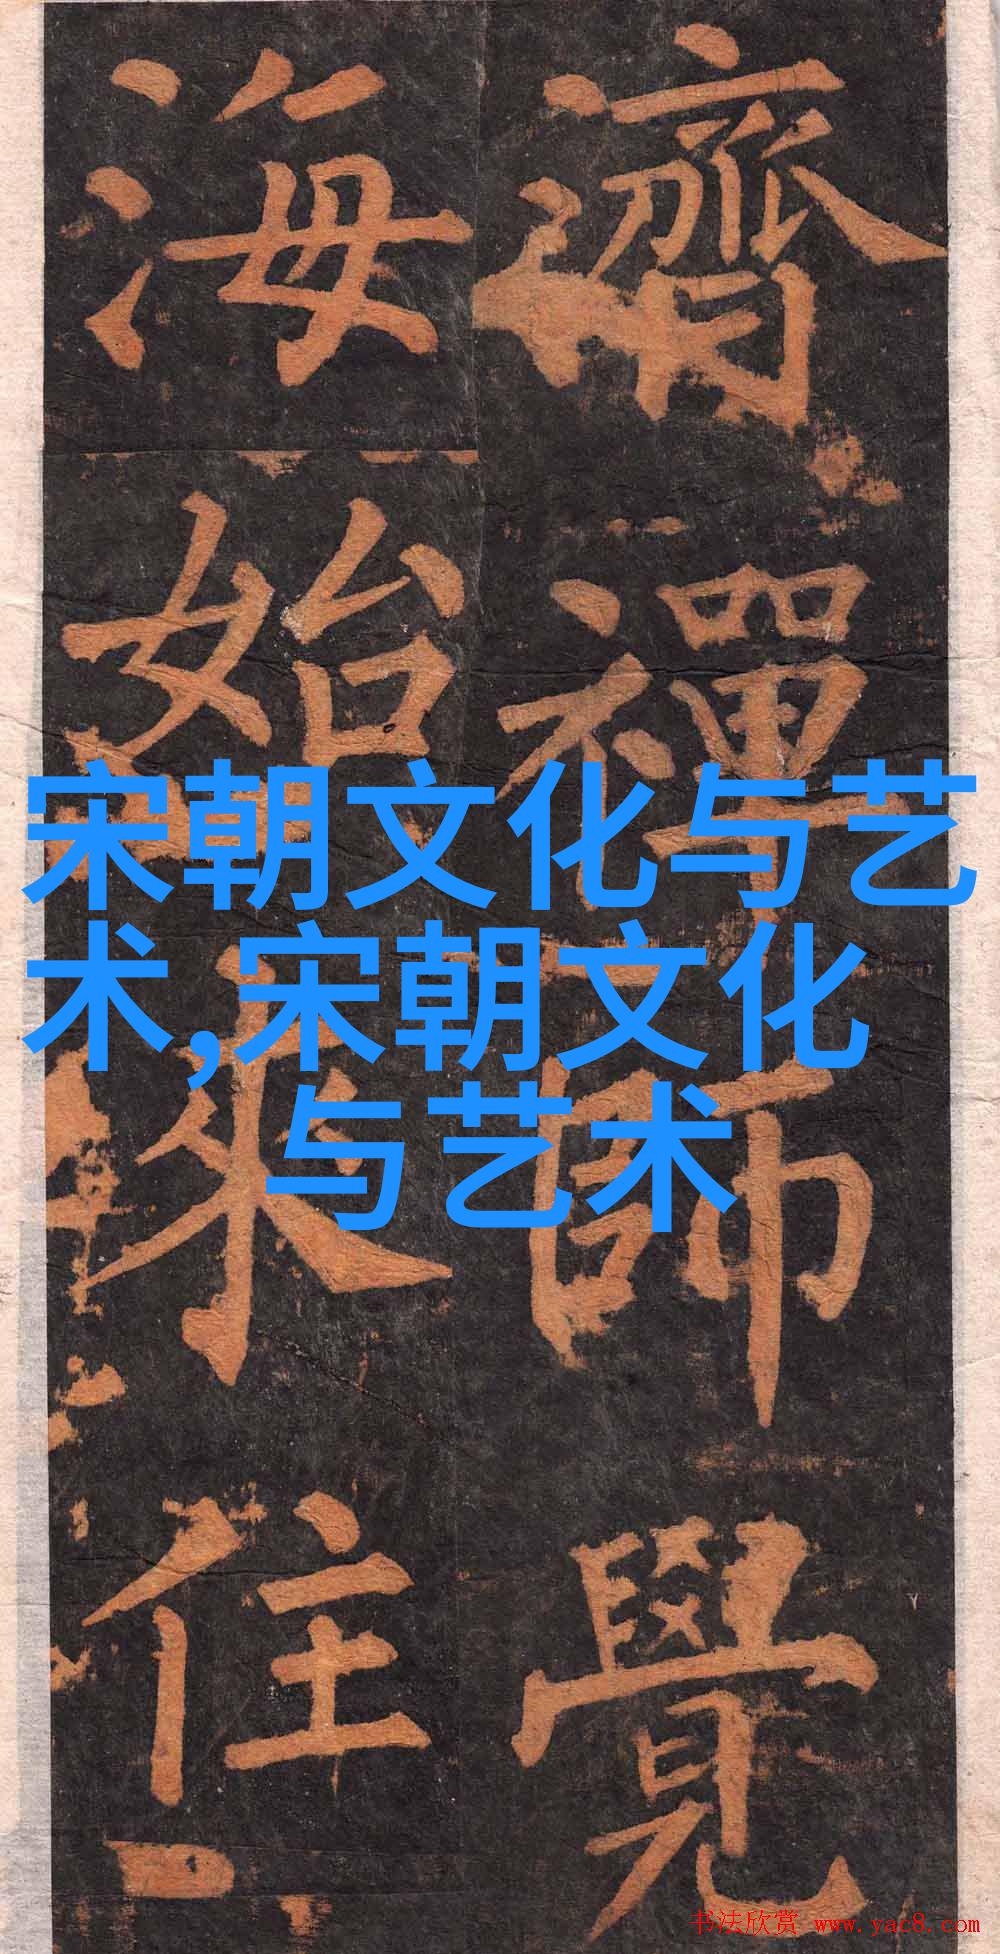 濟禪師覺
海始來住
宋朝文化与艺
术,宋朝文化
与艺术
书法欣赏 www.yac8.com